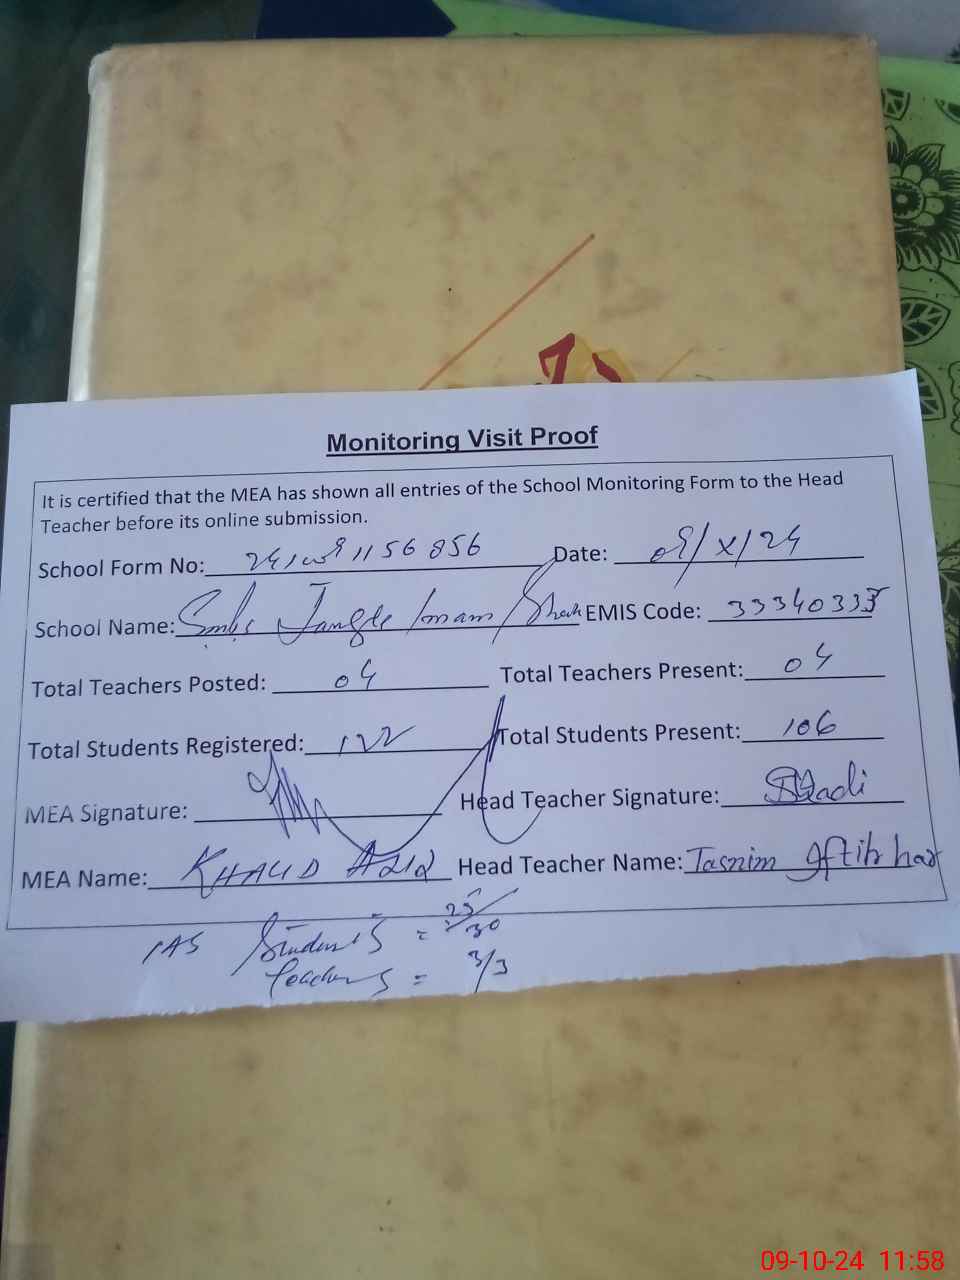 Monitoring Visit Proof
It is certified that the MEA has shown all entries of the School Monitoring Form to the Head
Teacher before its online submission.
School Form No: 1156856 Date: 09/X/24
School Name: Jangle Imam Shah EMIS Code: 33340335
Total Teachers Posted: 04 Total Teachers Present: 04
Total Students Registered: 122 Total Students Present: 106
MEA Signature: Head Teacher Signature:
MEA Name: KHALID AZIZ Head Teacher Name: Tasnim Iftikhar
IAS Students = 25/30
Teachers = 3/3
09-10-24 11:58